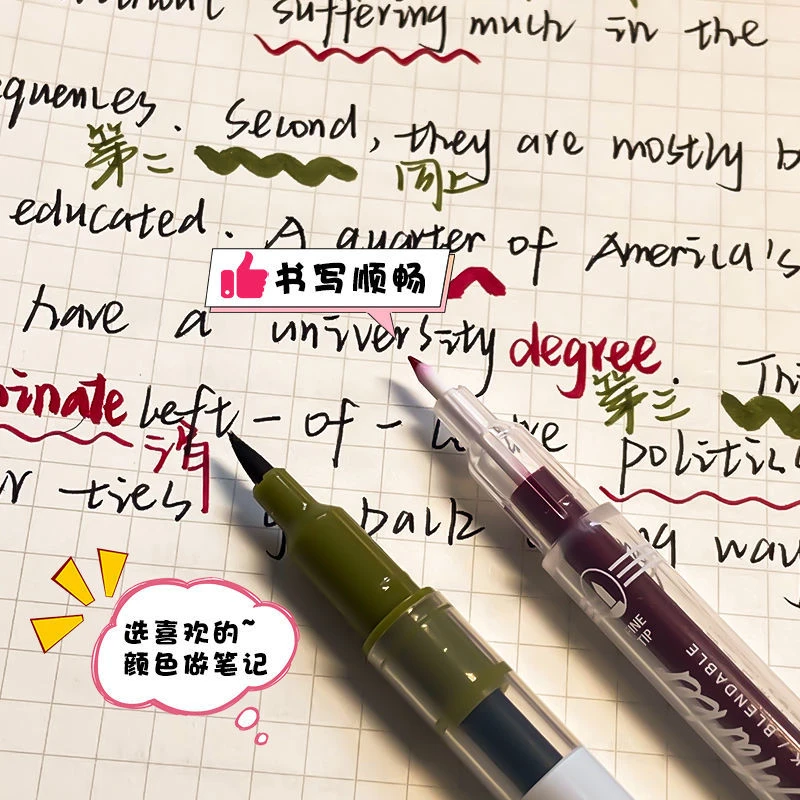 suffering much in the
Second, they are mostly
第二
同上
educated. A quarter of America's
书写顺畅
have a university degree.
第三
left-of-
消
politic
ties
back
way
FINE
TIP
BLENDABLE
选喜欢的~
颜色做笔记